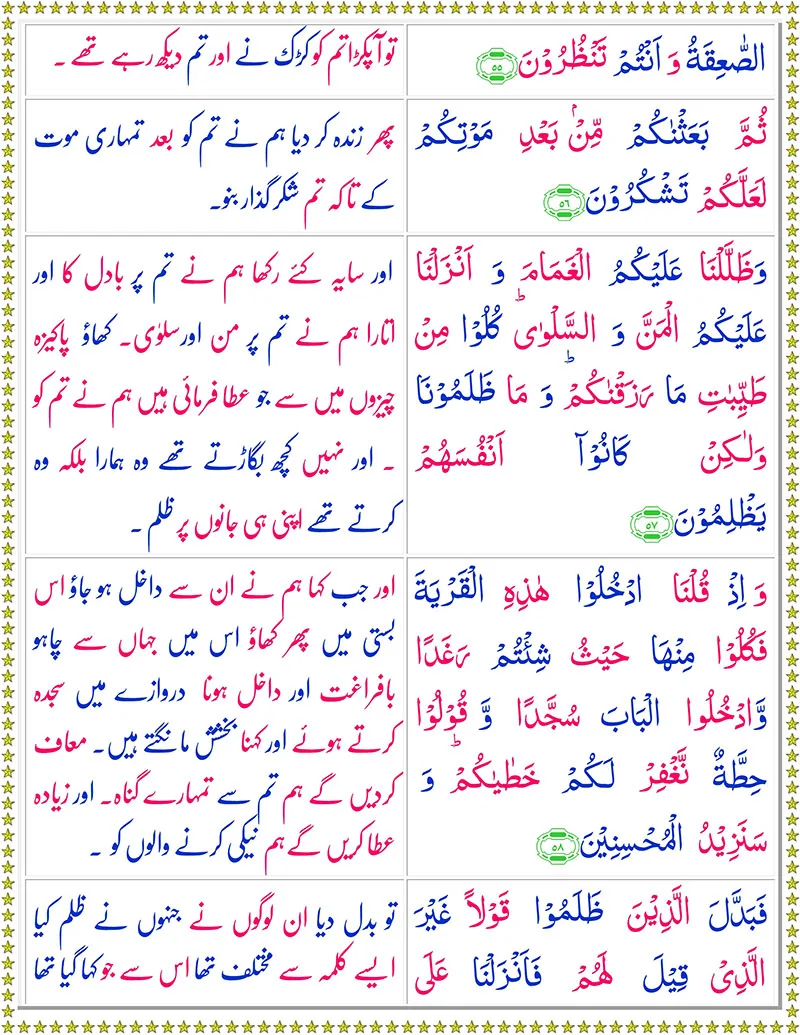 الصّٰعِقَةُ وَ اَنْتُمْ تَنْظُرُوْنَ ۵۵
تو آ پکڑا تم کو کڑک نے اور تم دیکھ رہے تھے ۔
ثُمَّ بَعَثْنٰكُمْ مِّنْۢ بَعْدِ مَوْتِكُمْ
لَعَلَّكُمْ تَشْكُرُوْنَ ۵۶
پھر زندہ کر دیا ہم نے تم کو بعد تمہاری موت
کے تاکہ تم شکر گذار بنو۔
وَظَلَّلْنَا عَلَيْكُمُ الْغَمَامَ وَ اَنْزَلْنَا
عَلَيْكُمُ الْمَنَّ وَ السَّلْوٰى ؕ كُلُوْا مِنْ
طَيِّبٰتِ مَا رَزَقْنٰكُمْ ؕ وَ مَا ظَلَمُوْنَا
وَلٰكِنْ كَانُوْۤا اَنْفُسَهُمْ
يَظْلِمُوْنَ ۵۷
اور سایہ کئے رکھا ہم نے تم پر بادل کا اور
اتارا ہم نے تم پر من اور سلوٰی۔ کھاؤ پاکیزہ
چیزوں میں سے جو عطا فرمائی ہیں ہم نے تم کو
۔ اور نہیں کچھ بگاڑتے تھے وہ ہمارا بلکہ وہ
کرتے تھے اپنی ہی جانوں پر ظلم ۔
وَ اِذْ قُلْنَا ادْخُلُوْا هٰذِهِ الْقَرْيَةَ
فَكُلُوْا مِنْهَا حَيْثُ شِئْتُمْ رَغَدًا
وَّادْخُلُوا الْبَابَ سُجَّدًا وَّ قُوْلُوْا
حِطَّةٌ نَّغْفِرْ لَكُمْ خَطٰيٰكُمْ ؕ وَ
سَنَزِيْدُ الْمُحْسِنِيْنَ ۵۸
اور جب کہا ہم نے ان سے داخل ہو جاؤ اس
بستی میں پھر کھاؤ اس میں جہاں سے چاہو
بافراغت اور داخل ہونا دروازے میں سجدہ
کرتے ہوئے اور کہنا بخشش مانگتے ہیں۔ معاف
کردیں گے ہم تم سے تمہارے گناہ۔ اور زیادہ
عطا کریں گے ہم نیکی کرنے والوں کو ۔
فَبَدَّلَ الَّذِيْنَ ظَلَمُوْا قَوْلًا غَيْرَ
الَّذِيْ قِيْلَ لَهُمْ فَاَنْزَلْنَا عَلَى
تو بدل دیا ان لوگوں نے جنہوں نے ظلم کیا
ایسے کلمہ سے مختلف تھا اس سے جو کہا گیا تھا